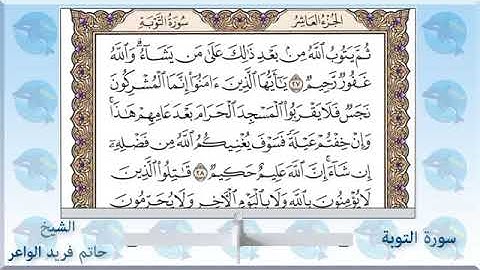 الجزء العاشر
سورة التوبة
ثُمَّ يَتُوبُ ٱللَّهُ مِنۢ بَعْدِ ذَٰلِكَ عَلَىٰ مَن يَشَآءُ ۗ وَٱللَّهُ
غَفُورٌ رَّحِيمٌ ٢٧ يَٰٓأَيُّهَا ٱلَّذِينَ ءَامَنُوٓا۟ إِنَّمَا ٱلْمُشْرِكُونَ
نَجَسٌ فَلَا يَقْرَبُوا۟ ٱلْمَسْجِدَ ٱلْحَرَامَ بَعْدَ عَامِهِمْ هَٰذَا ۚ
وَإِنْ خِفْتُمْ عَيْلَةً فَسَوْفَ يُغْنِيكُمُ ٱللَّهُ مِن فَضْلِهِۦٓ
إِن شَآءَ ۚ إِنَّ ٱللَّهَ عَلِيمٌ حَكِيمٌ ٢٨ قَٰتِلُوا۟ ٱلَّذِينَ
لَا يُؤْمِنُونَ بِٱللَّهِ وَلَا بِٱلْيَوْمِ ٱلْءَاخِرِ وَلَا يُحَرِّمُونَ
سورة التوبة
الشيخ
حاتم فريد الواعر